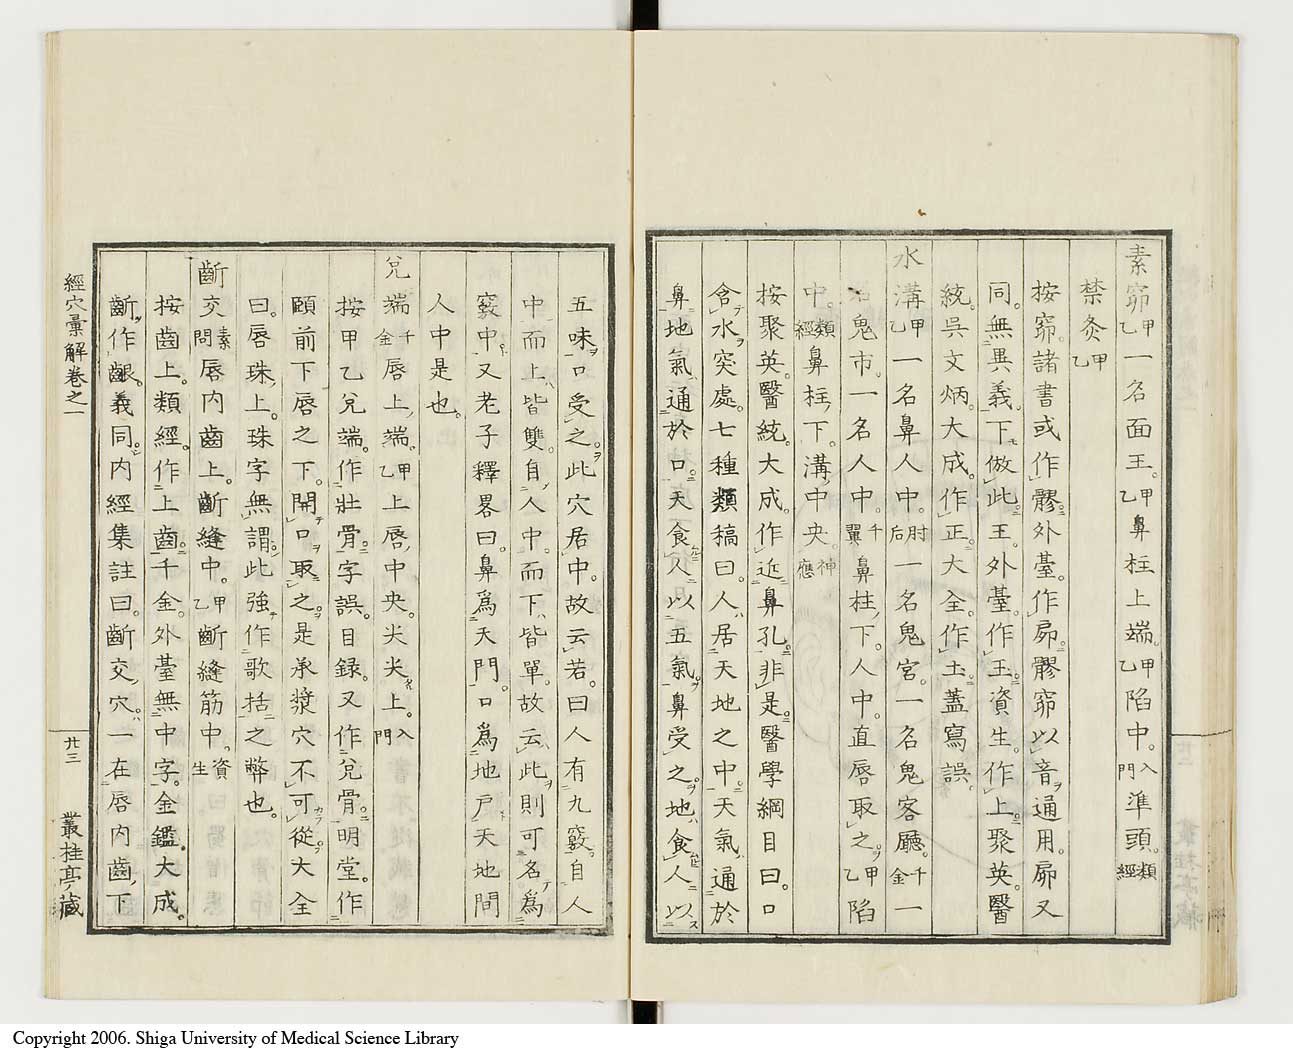 素窌甲乙一名面王。甲乙鼻柱上端。甲乙陷中。入門準頭。類經
禁灸甲乙
按窌。諸書或作髎。外臺。作扅。髎窌以音通用。扅又
同。無異義。下倣此。王。外臺。作玉。資生。作上。聚英。醫
統。吳文炳。大成。作正。大全。作玉。蓋寫誤。
水溝甲乙一名鼻人中。肘后一名鬼宮。一名鬼客廳。千金一
名鬼市。一名人中。千翼鼻柱下。人中。直唇取之。甲乙陷
中。類經鼻柱下。溝中央。神應
按聚英。醫統。大成。作近鼻孔。非是。醫學綱目曰。口
含水突處。七種類稿曰。人居天地之中。天氣通於
鼻。地氣通於口。天食人以五氣。鼻受之。地食人以
五味。口受之。此穴居中。故云。若曰人有九竅。自人
中而上皆雙。自人中。而下皆單。故云。此則可名為
竅中。又老子釋畧曰。鼻爲天門。口爲地戶。天地間
人中是也。
兌端千金唇上端。甲乙上唇中央。尖尖上。入門
按甲乙兌端。作壯骨。字誤。目錄。又作兌骨。明堂。作
頤前下唇之下。開口取之。是承漿穴不可從。大全
曰。唇珠上。珠字無謂。此強作歌括之弊也。
齗交素問唇內齒上。齗縫中。甲乙齗縫筋中。資生
按齒上。類經。作上齒。千金。外臺無中字。金鑑。大成。
齗。作齦。義同。內經集註曰。齗交穴。一在唇內齒下
經穴彙解卷之一
廿三
叢桂亭藏
Copyright 2006. Shiga University of Medical Science Library